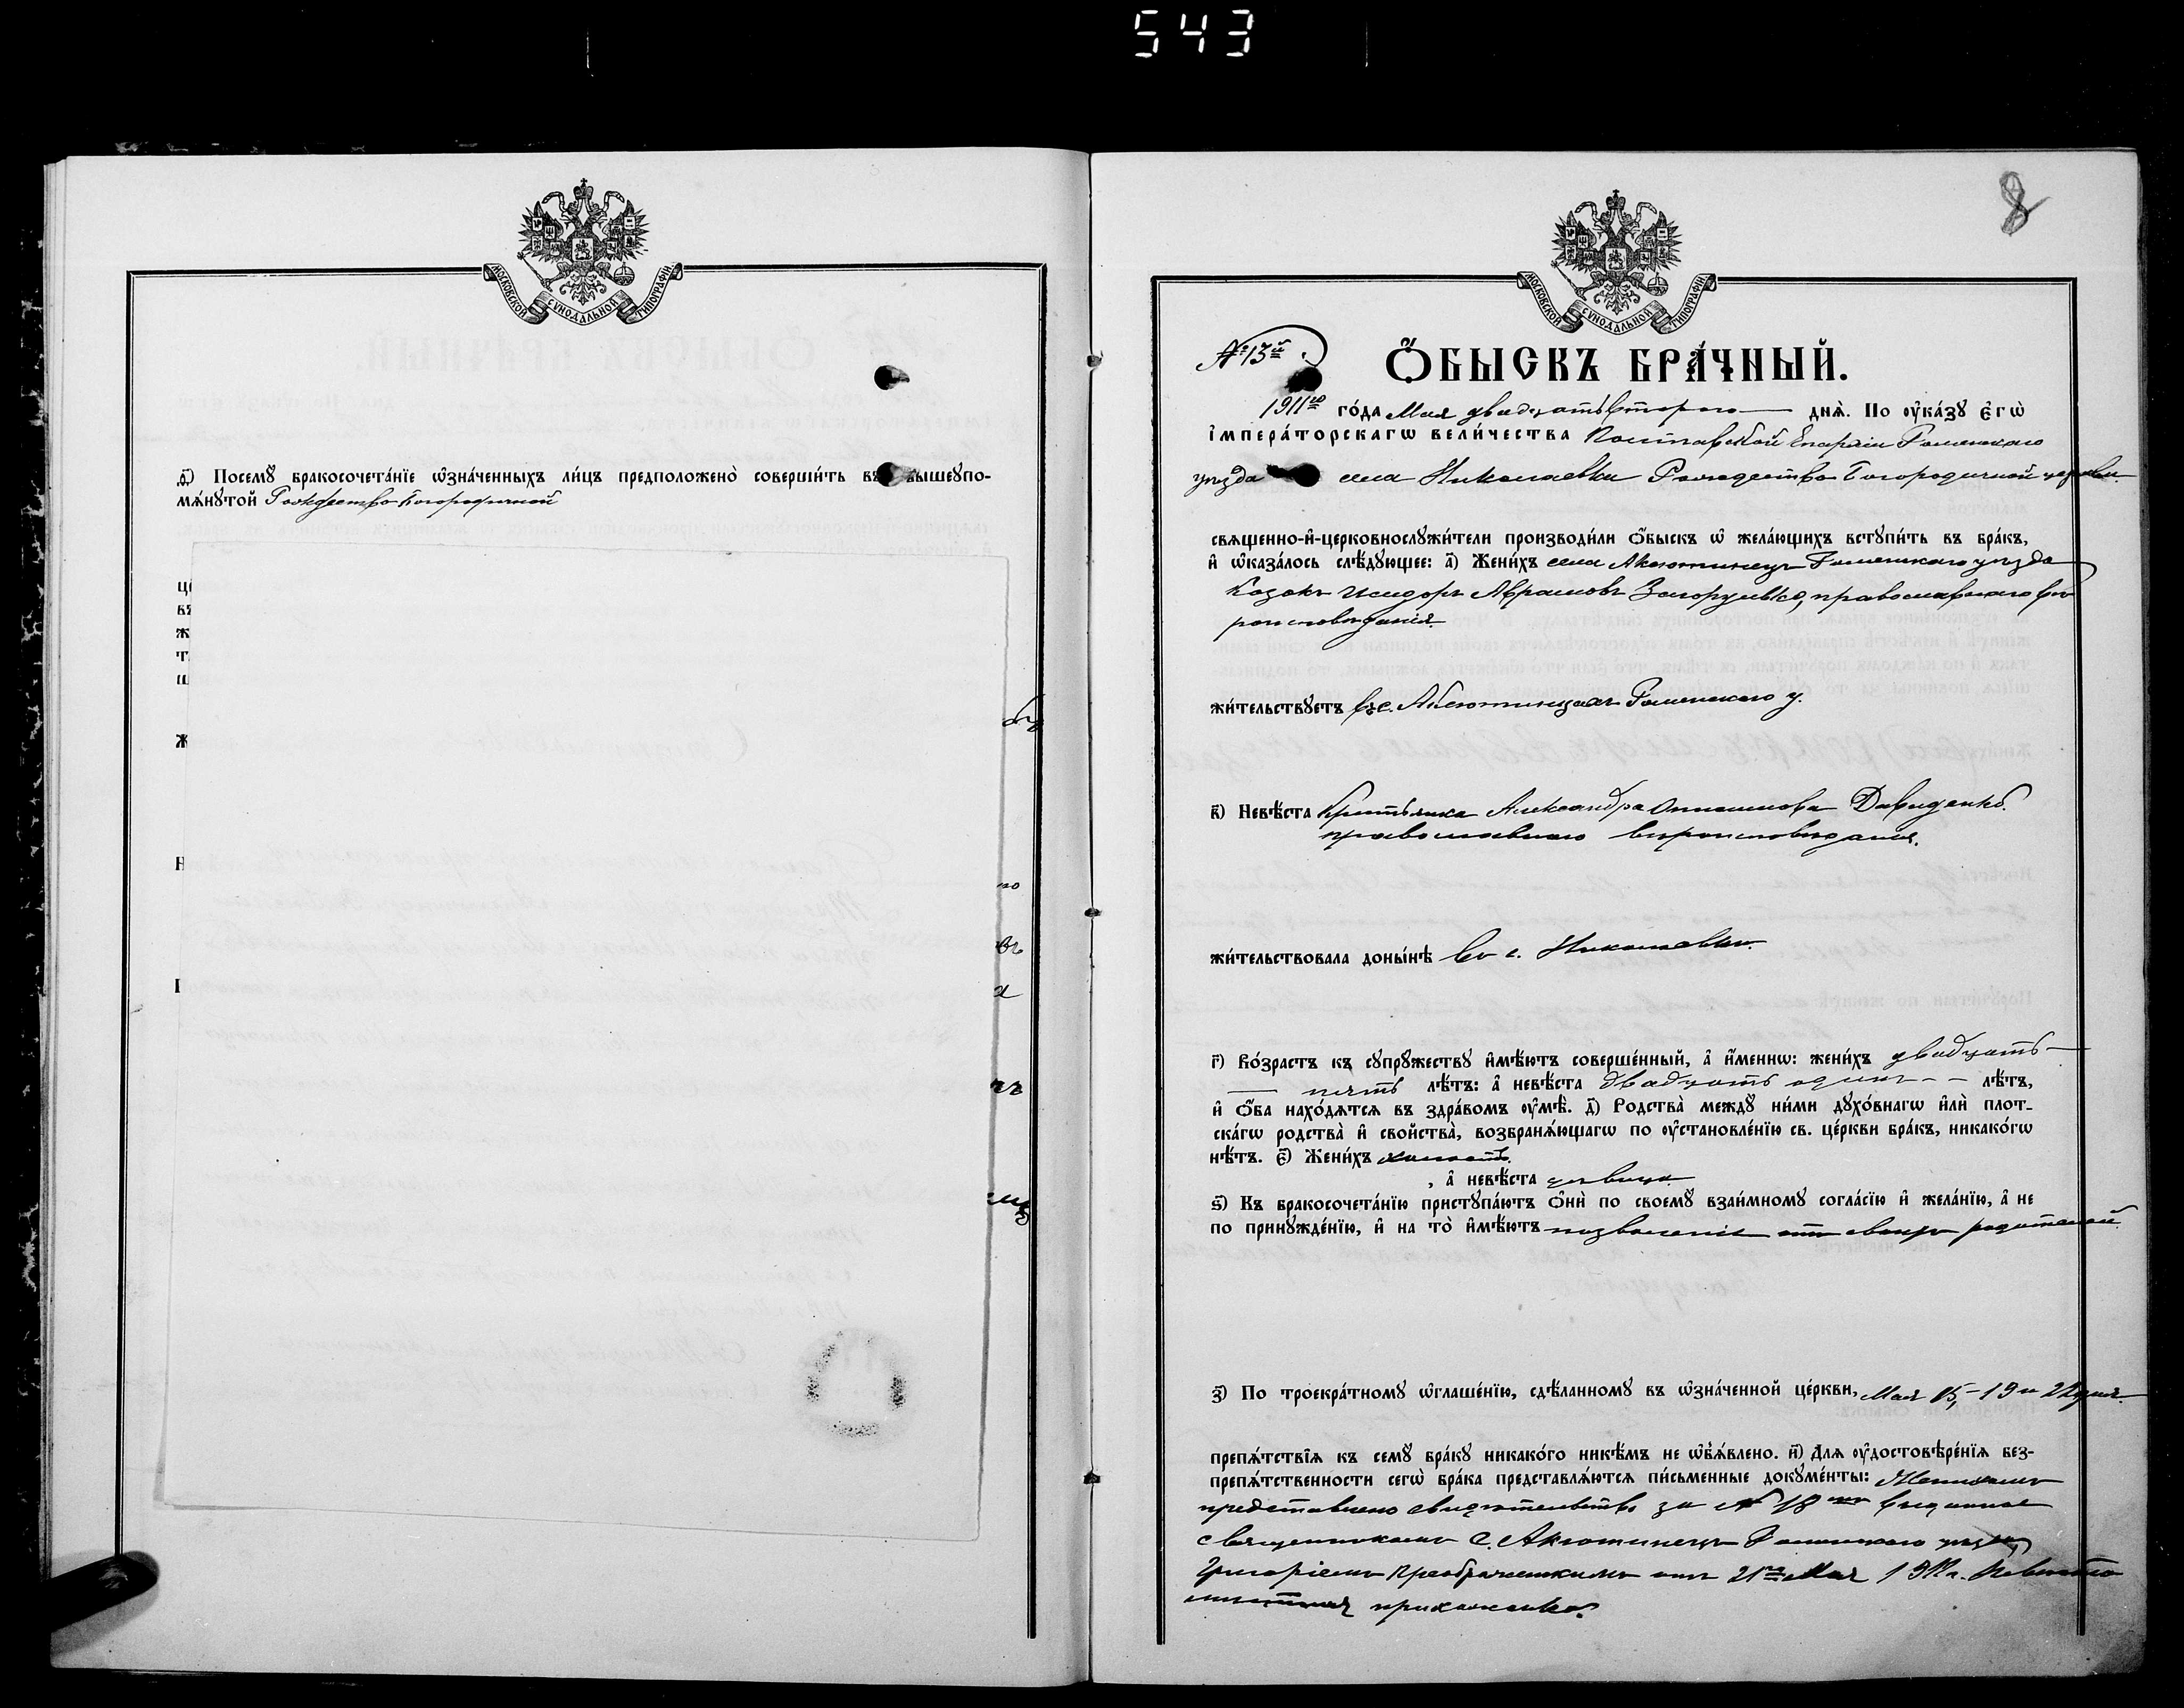 543
МОСКОВСКОЙ СѴНОДАЛЬНОЙ ТИПОГРАФІИ
д҃) Посемꙋ̀ бракосочета́нїе ѡ҆зна́ченныхъ ли́цъ предположено̀ соверши́ть въ вышеꙋпо-
мѧ́нꙋтой Рождество Богородичной
ц
въ
ж
т
ш
Ж
Н
П
8
МОСКОВСКОЙ СѴНОДАЛЬНОЙ ТИПОГРАФІИ
№ 13й
Ѻ҆́БЫСКЪ БРА́ЧНЫЙ.
1911го го́да Мая двадцать второго днѧ̀. По ᲂу҆ка́зꙋ Є҆гѡ̀
І҆мпера́торскагѡ вели́чества Полтавской Епархіи Роменскаго
уѣзда села Николаевки Рождество Богородичной церкви
свѧщенно-и҆-церковнослꙋжи́тели производи́ли ѻ҆́быскъ ѡ҆ жела́ющихъ встꙋпи́ть въ бра́къ,
и҆ ѡ҆каза́лось слѣ́дꙋющее: а҃) Жени́хъ села Аксютинецъ Роменскаго уѣзда
Козакъ Исидоръ Аврамовъ Загорулько, православнаго вѣ-
роисповѣданія.
жи́тельствꙋетъ въ с. Аксютинцахъ Роменскаго у.
в҃) Невѣ́ста Крестьянка Александра Онисимова Давиденко.
православнаго вѣроисповѣданія.
жи́тельствовала донынѣ во с. Николаевки.
г҃) Во́зрастъ къ сꙋпрꙋжествꙋ и҆мѣ́ютъ соверше́нный, а҆ и҆́меннѡ: жени́хъ двадцать
пять лѣ́тъ: а҆ невѣ́ста двадцать одинъ лѣ́тъ,
и҆ ѻ҆́ба нахо́дѧтсѧ въ здра́вомъ ᲂу҆мѣ̀. д҃) Родства̀ междꙋ̀ ни́ми дꙋхо́внагѡ и҆лѝ плот-
ска́гѡ родства̀ и҆ свойства̀, возбранѧ́ющагѡ по ᲂу҆становле́нїю св. це́ркви бра́къ, никако́гѡ
нѣ́тъ. є҃) Жени́хъ холостъ.
, а҆ невѣ́ста дѣвица
ѕ҃) Къ бракосочета́нїю пристꙋпа́ютъ ѻ҆нѝ по своемꙋ̀ взаи́мномꙋ согла́сїю и҆ жела́нїю, а҆ не
по принꙋжде́нїю, и҆ на то̀ и҆мѣ́ютъ позволеніе отъ своихъ родителей.
з҃) По троекра́тномꙋ ѡ҆глаше́нїю, сдѣ́ланномꙋ въ ѡ҆зна́ченной це́ркви, Мая 15, 19 и 22 дня
препѧ́тствїѧ къ семꙋ̀ бра́кꙋ никако́го никѣ́мъ не ѡ҆б̾ѧ́влено. и҃) Длѧ ᲂу҆достовѣре́нїѧ без-
препѧ́тственности сегѡ̀ бра́ка представлѧ́ютсѧ пи́сьменные докꙋме́нты: Женихомъ
представлено свидѣтельство за № 18 выданное
священникомъ с. Аксютинецъ Роменскаго уѣзда
Григоріемъ Преображенскимъ отъ 21го Мая 1911 г. Невѣста
мѣстная прихожанка.